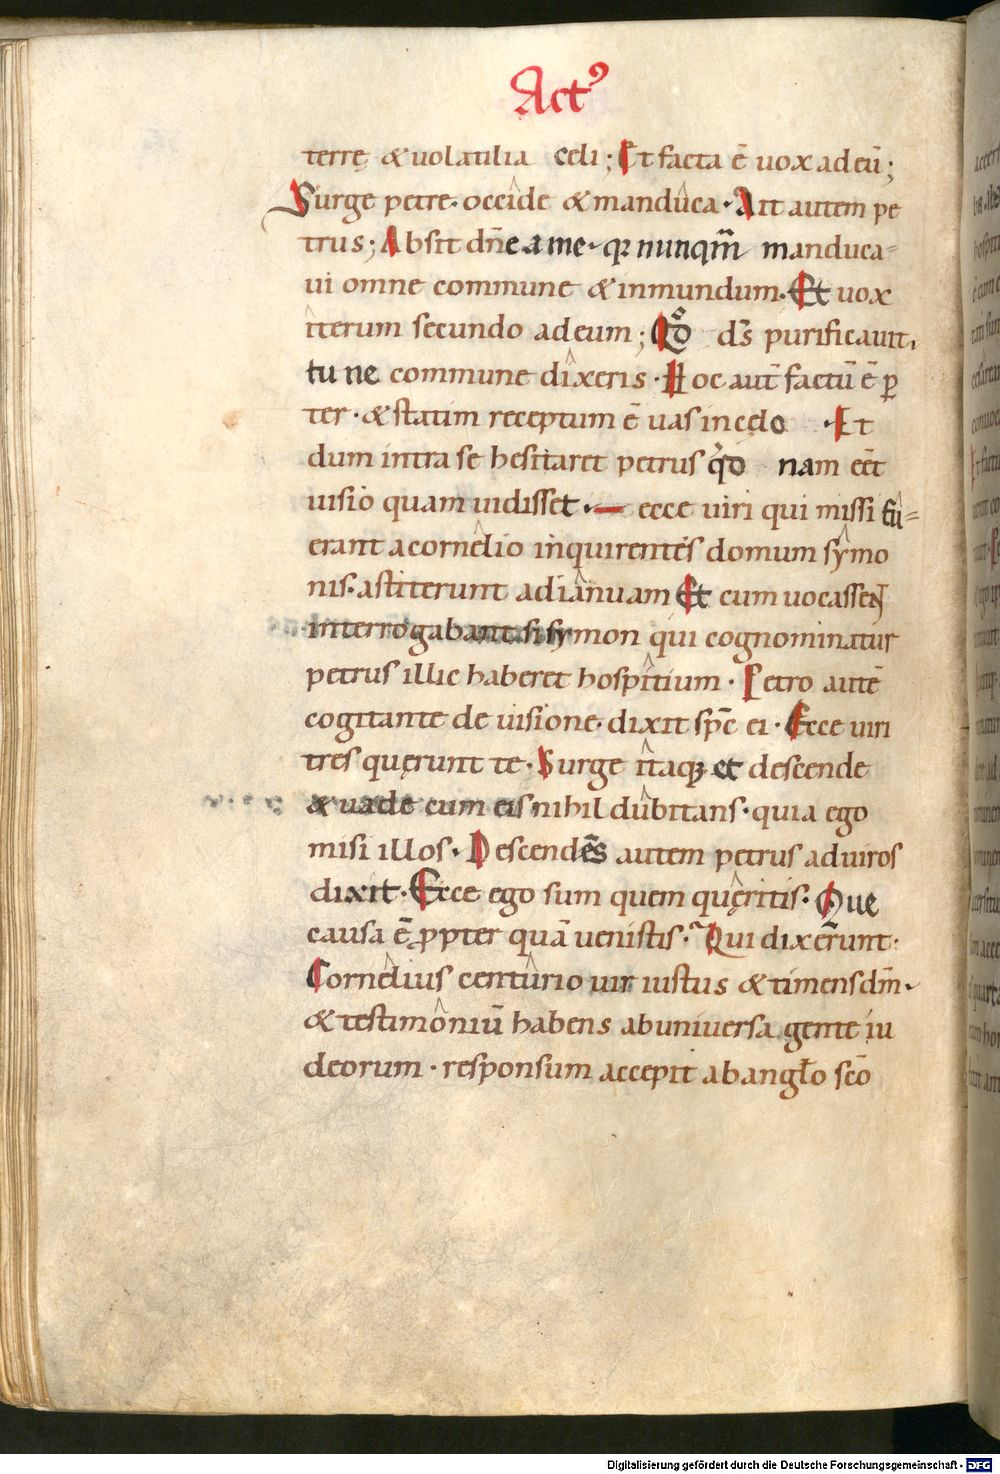 Actꝰ
terrę & uolatilia celi; Et facta ē uox ad eū;
Surge petre· occide & manduca· Ait autem pe
trus; Absit dn̄e a me· qꝛ nunqm̄ manduca-
ui omne commune & inmundum· Et uox
iterum secundo ad eum; Qđ ds̄ purificauit,
tu ne commune dixeris· Hoc aut̄ factū ē ꝑ
ter· & statim receptum ē uas in cęlo · Et
dum intra se hesitaret petrus qͥd nam eēt
uisio quam uidisset· — ecce uiri qui missi fu=
erant a cornelio inquirentes domum symo
nis· astiterunt ad ianuam Et cum uocassent
interrogabant si symon qui cognominatur
petrus illic haberet hospitium· Petro autē
cogitante de uisione· dixit sp̄c ei· Ecce uiri
tres quęrunt te· Surge itaqꝫ et descende
& uade cum eis nihil dubitans· quia ego
misi illos· Descendēs autem petrus ad uiros
dixit· Ecce ego sum quem quęritis· Que
causa ē ꝓpter quā uenistis· Qui dixerunt·
Cornelius centurio uir iustus & timens dm̄·
& testimoniū habens ab uniuersa gente iu
deorum· responsum accepit ab angło sc̄o
Digitalisierung gefördert durch die Deutsche Forschungsgemeinschaft - DFG